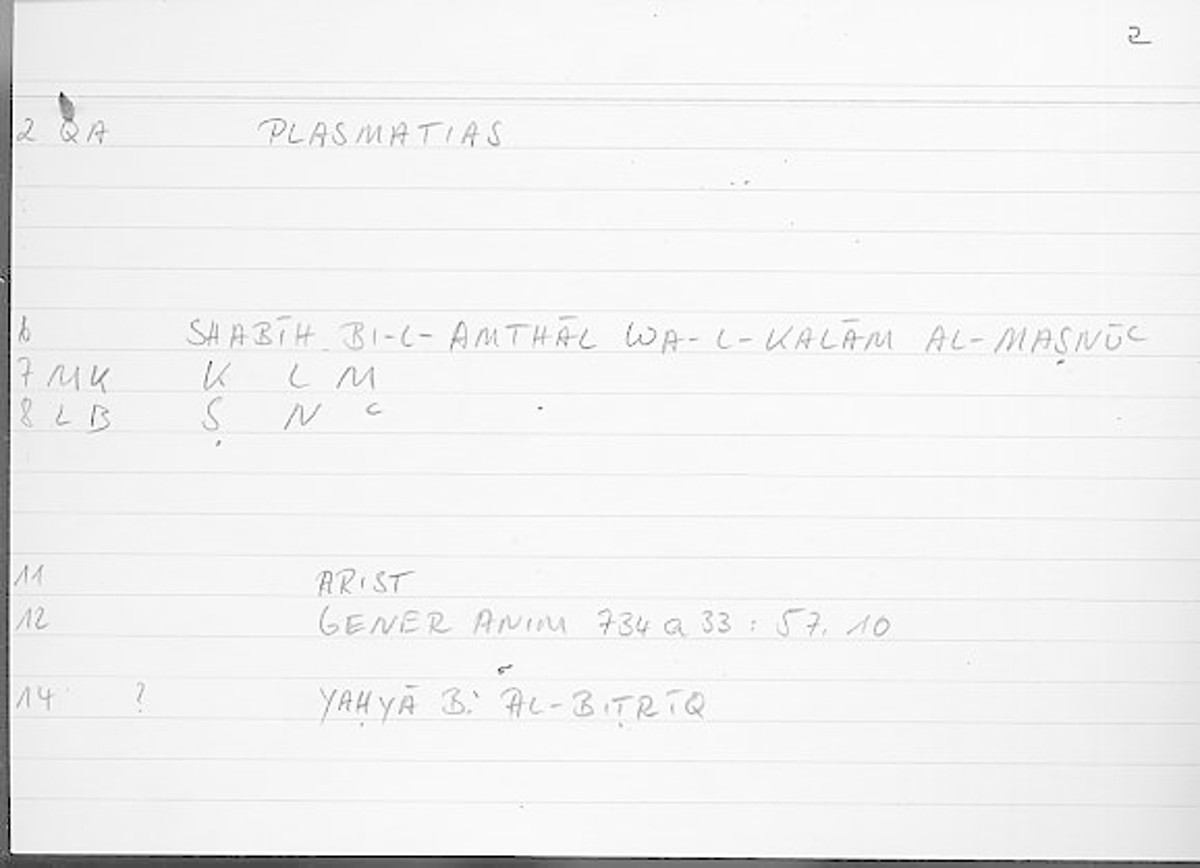 2
2 QA PLASMATIAS
6 SHABĪH BI-L-AMTHĀL WA-L-KALĀM AL-MAṢNŪʿ
7 MK K L M
8 LB Ṣ N ʿ
11 ARIST
12 GENER ANIM 734 a 33 : 57. 10
14 ? YAḤYĀ B. AL-BIṬRĪQ